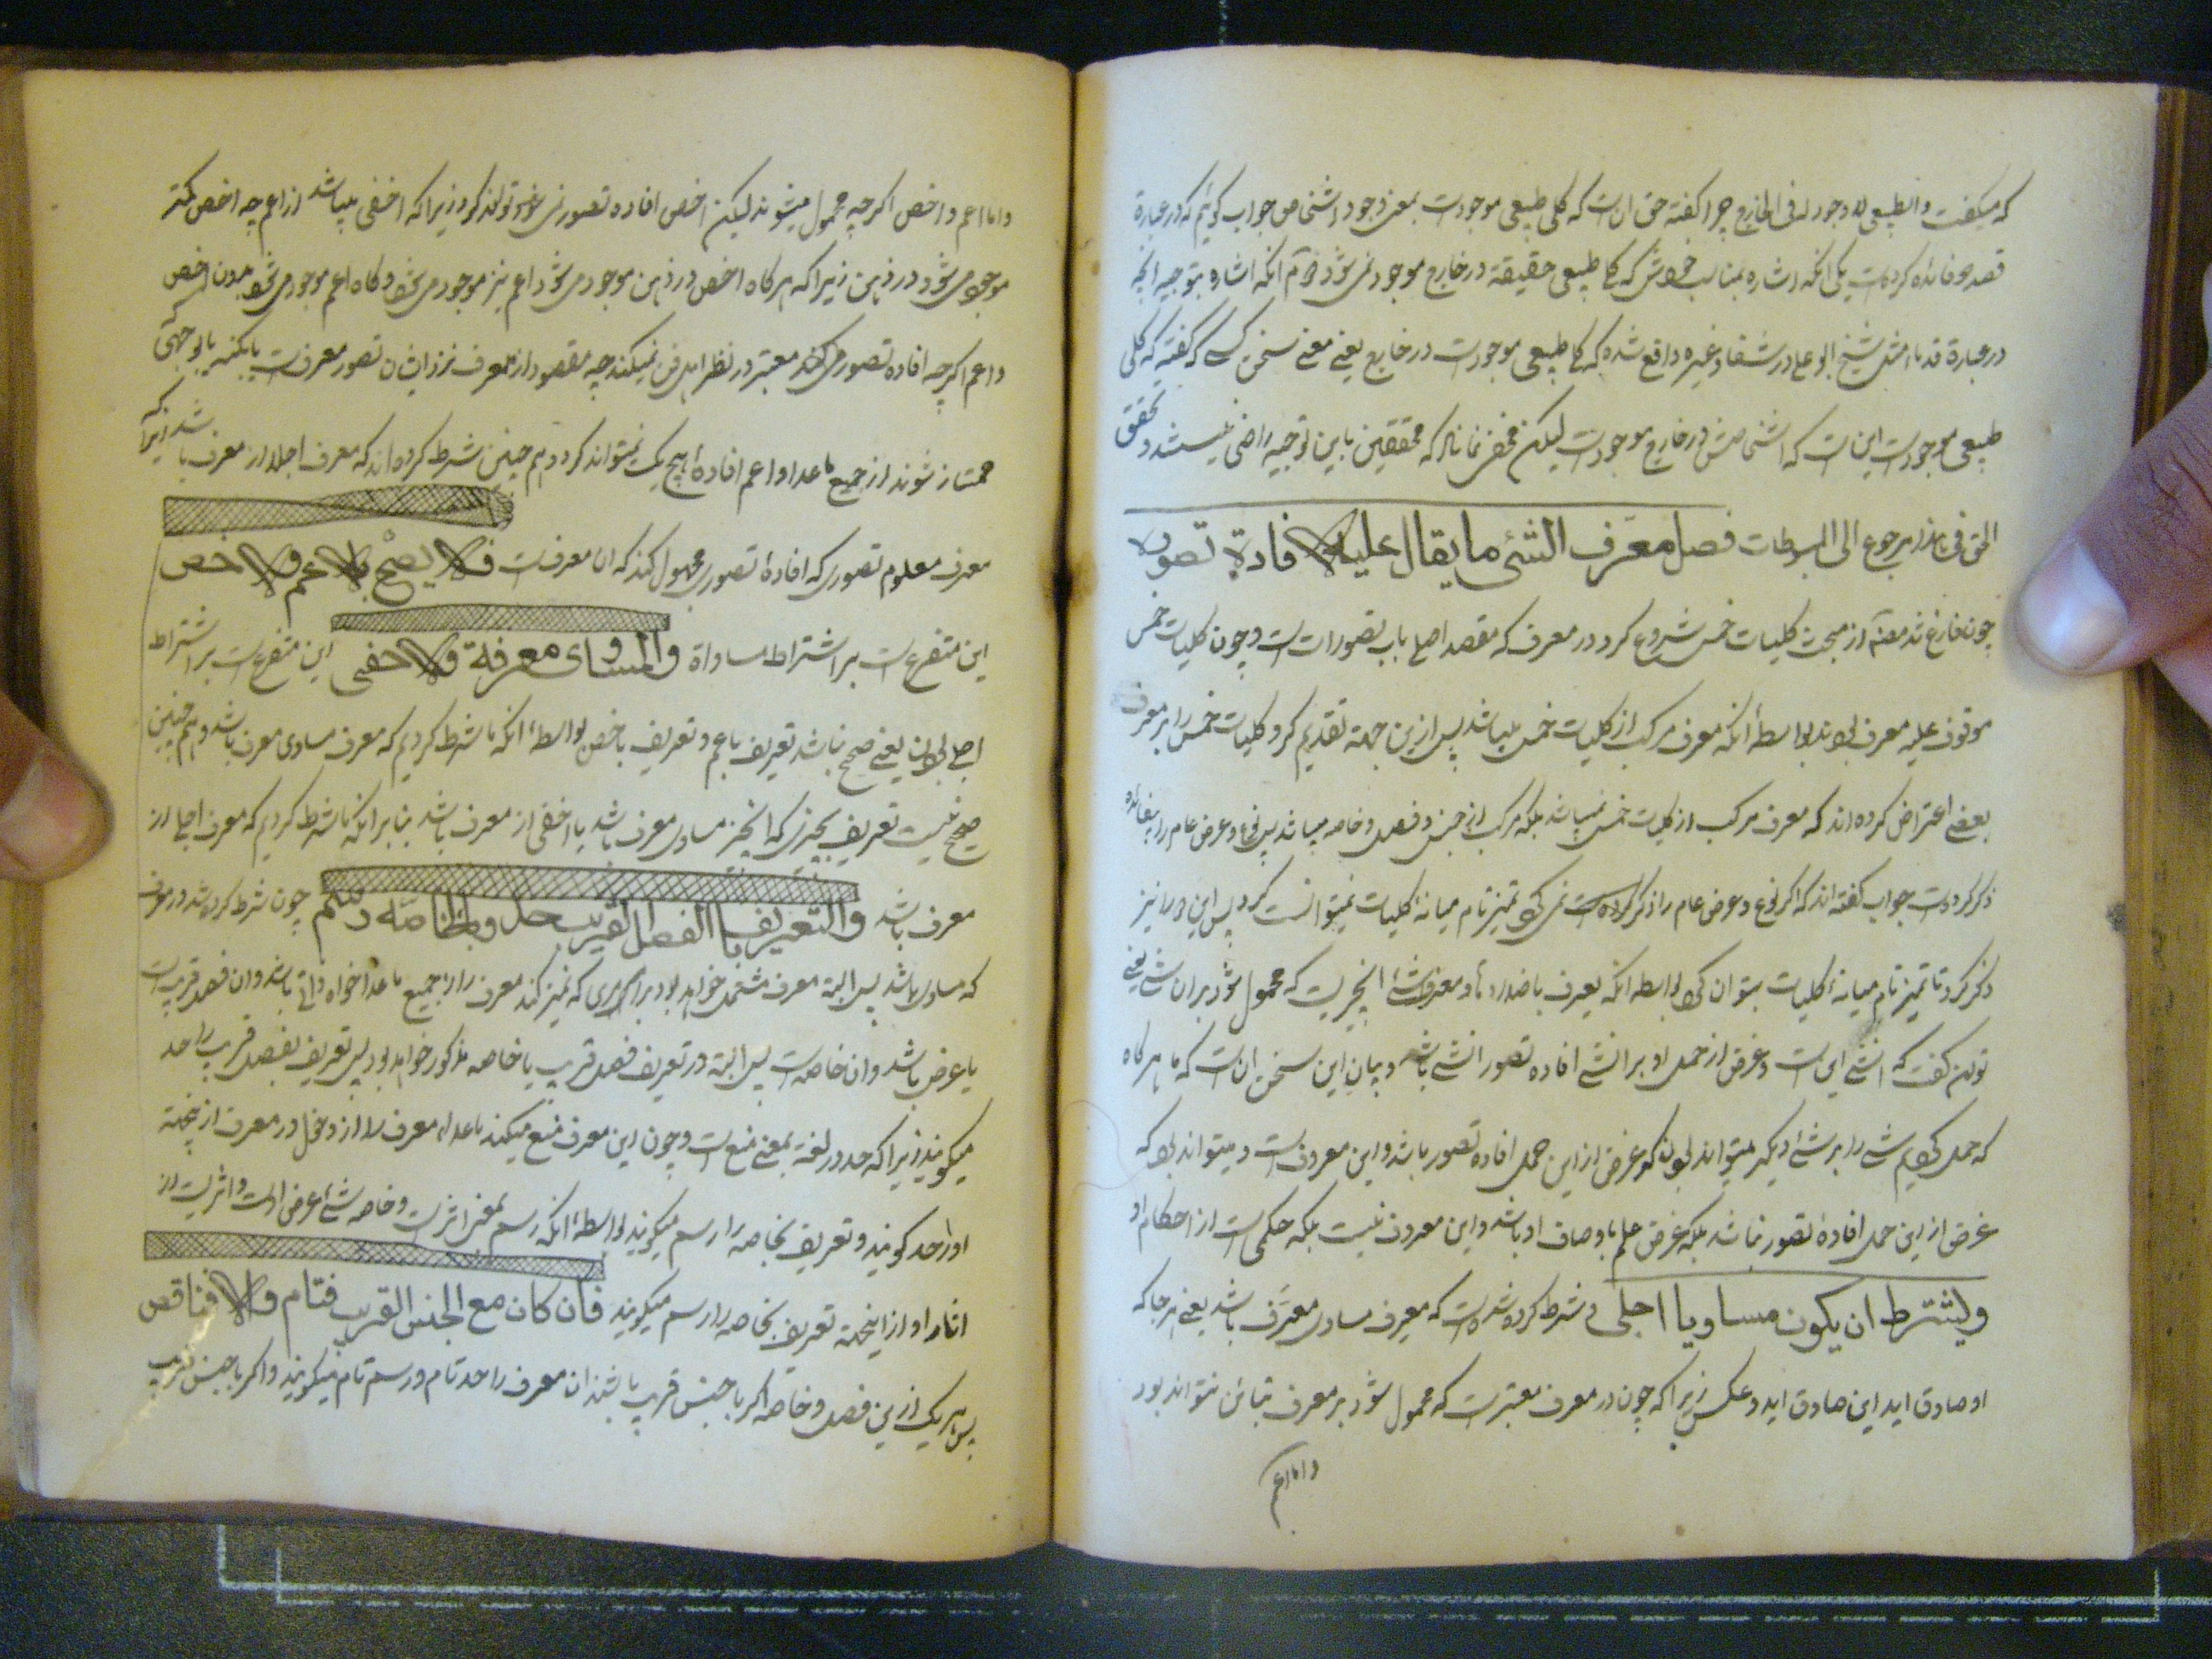 که میگفت والطبیعی لا وجود له فی الخارج چرا گفته حق ان است که کلی طبیعی موجود است بمعنی وجود اشخاص جواب گوئیم که در عبارة
قصد دو فائده کرده است یکی انکه اشاره بمناسب خودش که کلی طبیعی حقیقة در خارج موجود نمی شود دویم انکه اشاره بتوجیه انچه
در عبارة قدما مثل شیخ ابو علی در شفا و غیره واقع شده که کلی طبیعی موجود است در خارج یعنی معنی سخن کسی که گفته که کلی
طبیعی موجود است این است که اشخاصش در خارج موجود است لیکن مخفی نماناد که محققین باین توجیه راضی نیستند و تحقیق
الحق فی هذا یرجوع الی المبسوطات فصل معرّف الشئ ما یقال علیه لافادة تصوره
چون فارغ شد مصنف از مبحث کلیات خمس شروع کرد در معرف که مقصد اصلی باب تصورات است و چون کلیات خمس
موقوف علیه معرف بودند بواسطهٔ انکه معرف مرکب از کلیات خمس میباشد پس ازین جهة تقدیم کرد کلیات خمس را بر معرف
بعضی اعتراض کرده اند که معرف مرکب از کلیات خمس نمیباشد بلکه مرکب از جنس و فصل و خاصه میباشد پس نوع و عرض عام را بیفائده
ذکر کرده است جواب گفته اند که اگر نوع و عرض عام را ذکر نمی کرد تمیز تام میانهٔ کلیات نمیتوانست کرد پس این دو را نیز
ذکر کرد تا تمیز تام میانهٔ کلیات بتوان کرد بواسطه انکه یعرف باضدادها و معرف شئ انچیزیست که محمول شود بران شئ یعنی
توان گفت که انشئ این است و غرض از حمل او بر انشئ افاده تصور انشئ باشد و بیان این سخن ان است که ما هر گاه
که حمل کنیم شئ را بر شئ دیگر میتواند بود که غرض از این حمل افاده تصور باشد و این معروف است و میتواند بود که
غرض از این حمل افادهٔ تصور نباشد بلکه غرض علم باوصاف او باشد و این معروف نیست بلکه حکمی است از احکام او
ویشترط ان یکون مساویا اجلی و شرط کرده شده است که معرف مساوی معرَّف باشد یعنی هر جا که
او صادق اید این صادق اید و عکس زیرا که چون در معرف معتبر است که محمول شود بر معرف تباین نتواند بود
واما اعم
واما اعم و اخص اگر چه محمول میشوند لیکن اخص افاده تصور نمی تواند کرد زیرا که اخفی میباشد از اعم چه اخص کمتر
موجود می شود در ذهن زیرا که هر گاه اخص در ذهن موجود می شود اعم نیز موجود می شود و گاه اعم موجود می شود بدون اخص
و اعم اگر چه افاده تصور می کند معتبر در نظر اهل فن نمیکند چه مقصود از معرف نزد ایشان تصور معرف است بالکنه یا بوجهی که
ممتاز شوند از جمیع ماعدا و اعم افادهٔ هیچ یک نمیتواند کرد و هم چنین شرط کرده اند که معرف اجلی از معرف باشد زیرا که
معرف معلوم تصوری که افادهٔ تصوری مجهول کند که ان معرف است فلا یصح بالاعم والاخص
این متفرع است بر اشتراط مساواة والمساوی معرفة والاخفی این متفرع است بر اشتراط
اجلی بودن یعنی صحیح نباشد تعریف باعم و تعریف باخص بواسطهٔ انکه ما شرط کردیم که معرف مساوی معرف باشد و هم چنین
صحیح نیست تعریف بچیزی که انچیز مساوی معرف باشد یا اخفی از معرف باشد بنا بر انکه ما شرط کردیم که معرف اجلی از
معرف باشد والتعریف بالفصل القریب حد وبالخاصّه رسم چون شرط کرده شد در معرف
که مساوی باشد پس البته معرف مشتمل خواهد بود بر امری که تمیز کند معرف را از جمیع ماعدا خواه ذاتی باشد وان فصل قریب است
یا عرضی باشد وان خاصه است پس البته در تعریف فصل قریب یا خاصه مذکور خواهد بود پس تعریف بفصل قریب را حد
میگویند زیرا که حد در لغة بمعنی منع است و چون این معرف منع میکند ماعداء معرف را از دخول در معرف ازینجهة
او را حد گویند و تعریف بخاصه را رسم میگویند بواسطهٔ انکه رسم بمعنی اثر است و خاصه شئ عرض او است و اثریست از
اثار او از اینجهة تعریف بخاصه را رسم میگویند فان کان مع الجنس القریب فتام والا فناقص
پس هر یک از این فصل و خاصه اگر با جنس قریب باشند ان معرف را حد تام و رسم تام میگویند و اگر با جنس قریب